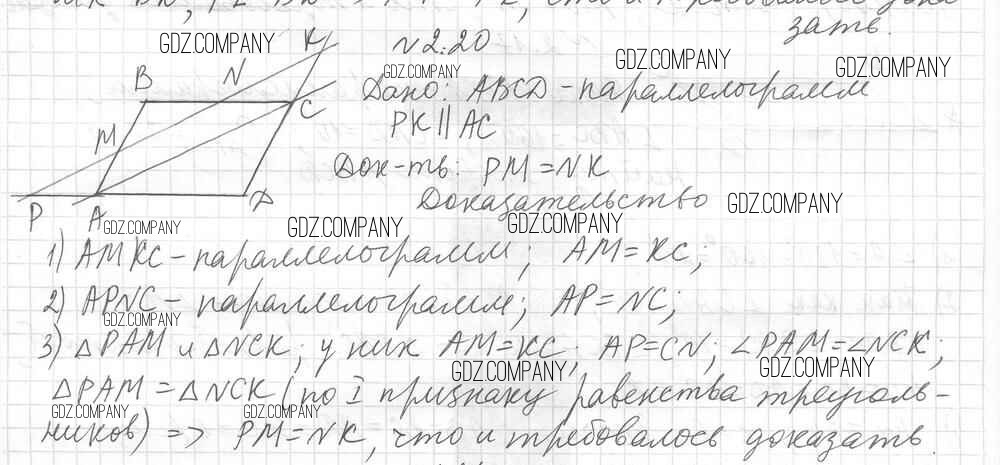 зать.
GDZ.COMPANY
K
N 2.20
GDZ.COMPANY
GDZ.COMPANY
GDZ.COMPANY
B N
Дано: ABCD - параллелограмм
C
PK || AC
M
Док-ть: PM = NK
P A D
Доказательство
GDZ.COMPANY
GDZ.COMPANY
GDZ.COMPANY
GDZ.COMPANY
1) AMKC - параллелограмм; AM = KC;
2) APNC - параллелограмм; AP = NC;
GDZ.COMPANY
3) △PAM и △NCK; у них AM = KC; AP = CN; ∠PAM = ∠NCK;
GDZ.COMPANY
GDZ.COMPANY
△PAM = △NCK (по I признаку равенства треуголь-
GDZ.COMPANY
GDZ.COMPANY
ников) => PM = NK, что и требовалось доказать.